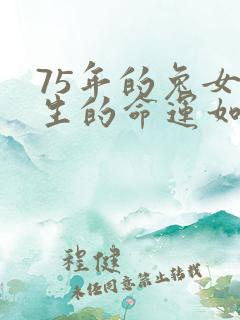 75年的兔女
生的命运如
程健
未经同意禁止转载